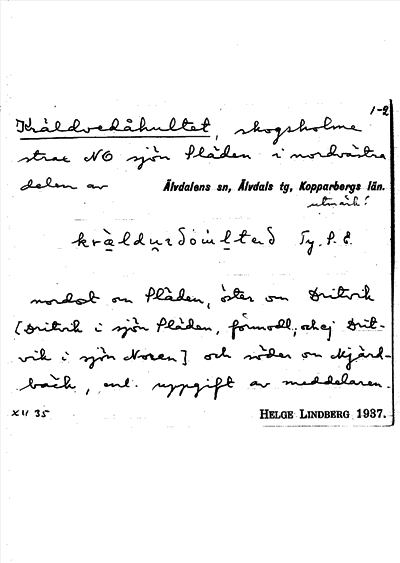 1-2
Kräldvedåhultet, skogsholme
strax NO sjön Fläden i nordvästra
delen av Älvdalens sn, Älvdals tg, Kopparbergs län.
utmärk!
Ty. P. E.
nordost om Fläden, öster om Dritvik
[Dritvik i sjön Fläden, förmodl., och ej Drit-
vik i sjön Noren] och söder om Mjärd-
bäck, enl. uppgift av meddelaren.
XII 35 HELGE LINDBERG 1937.